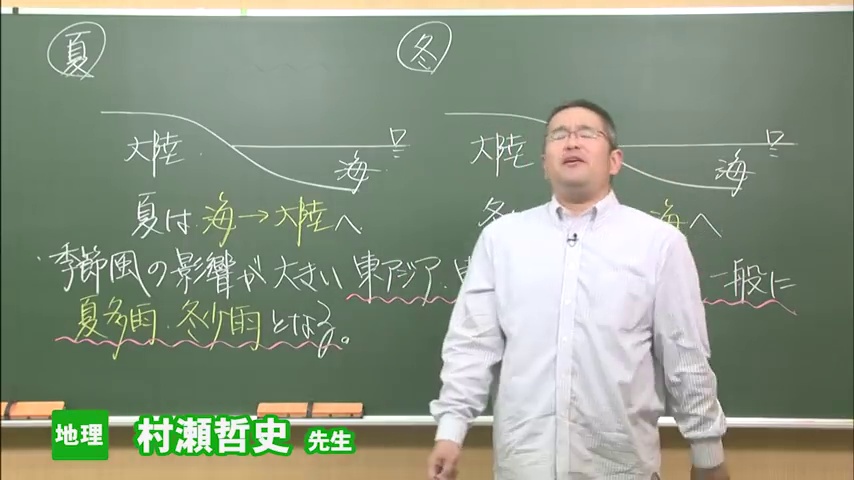 夏
冬
大陸
海
大陸
海
夏は 海→大陸へ
冬 海へ
・季節風の影響が大きい 東アジア・東 一般に
夏多雨・冬少雨となる。
地理 村瀬哲史 先生